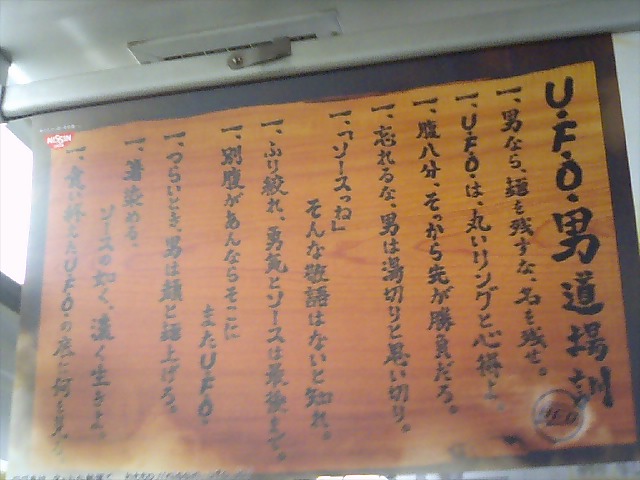 U.F.O.男道場訓
一、男なら、麺を残すな、名を残せ。
一、U.F.O.は、丸いリングと心得よ。
一、腹八分、そっから先が勝負だろ。
一、忘れるな、男は湯切りと思い切り。
一、「ソースっね」
そんな敬語はないと知れ。
一、ふり絞れ、勇気とソースは最後まで。
一、別腹があんならそこに
またU.F.O.
一、つらいとき、男は顔と麺上げろ。
一、箸染める、
ソースの如く、濃く生きよ。
一、食い終えたU.F.O.の底に何を見
NISSIN